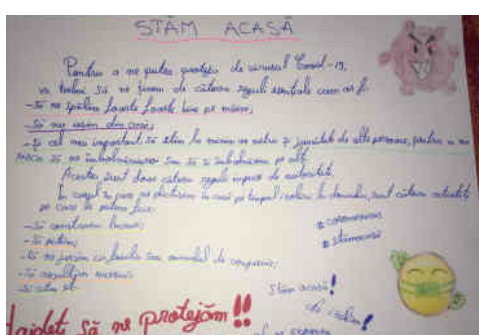 STĂM ACASĂ
Pentru a ne putea proteja de virusul Covid-19,
va trebui să ne ținem de câteva reguli esențiale cum ar fi:
-Să ne spălăm foarte foarte bine pe mâini;
-Să nu ieșim din casă;
-Și cel mai important să stăm la minim un metru și jumătate de alte persoane, pentru a nu
risca să ne îmbolnăvim sau să îi îmbolnăvim pe alții.
Acestea sunt doar câteva reguli impuse de autorități.
În cazul în care ne plictisim în casă pe timpul izolării la domiciliu, sunt câteva activități
pe care le putem face:
-Să construim lucruri;
-Să pictăm;
-Să ne jucăm cu familia sau animalul de companie;
-Să ascultăm muzică;
Și altele
# coronavirus
# stămacasă
Stăm acasă!
Haideți să ne protejăm!!